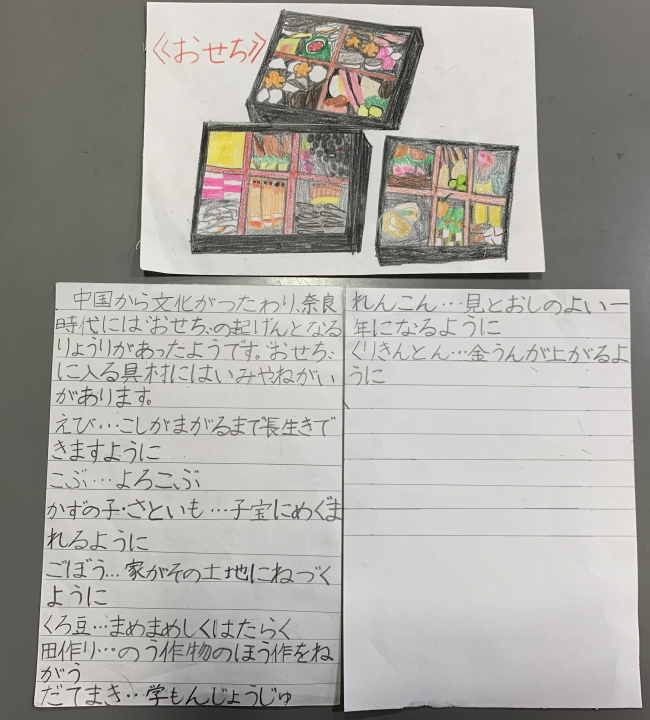 《おせち》
中国から文化がつたわり、奈良
時代には“おせち”の起げんとなる
りょうりがあったようです。“おせち”
に入る具材にはいみやねがい
があります。
えび…こしがまがるまで長生きで
きますように
こぶ…よろこぶ
かずの子・さといも…子宝にめぐま
れるように
ごぼう…家がその土地にねづく
ように
くろ豆…まめまめしくはたらく
田作り…のう作物のほう作をね
がう
だてまき…学もんじょうじゅ
れんこん…見とおしのよい一
年になるように
くりきんとん…金うんが上がるよ
うに